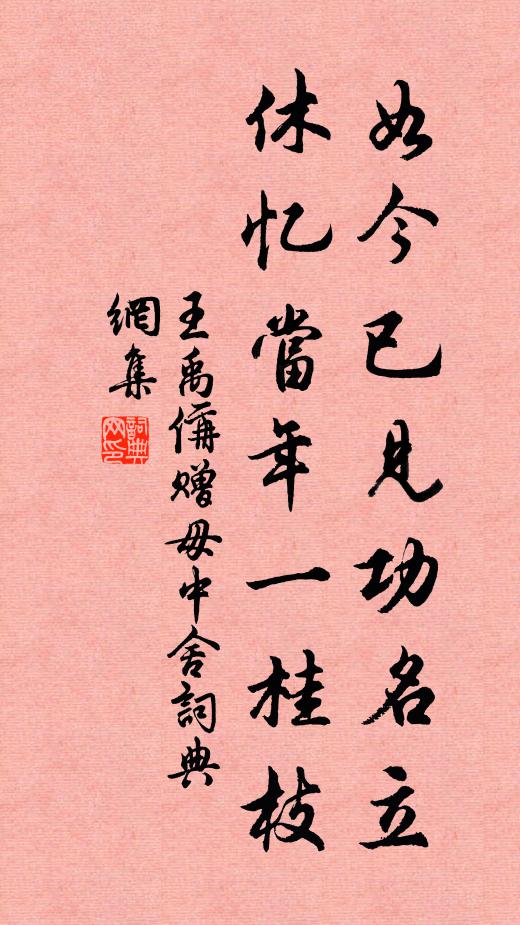 如今已見功名立
休忆當年一桂枝
王禹偁贈毋中舍詞典
網集
詞典網印